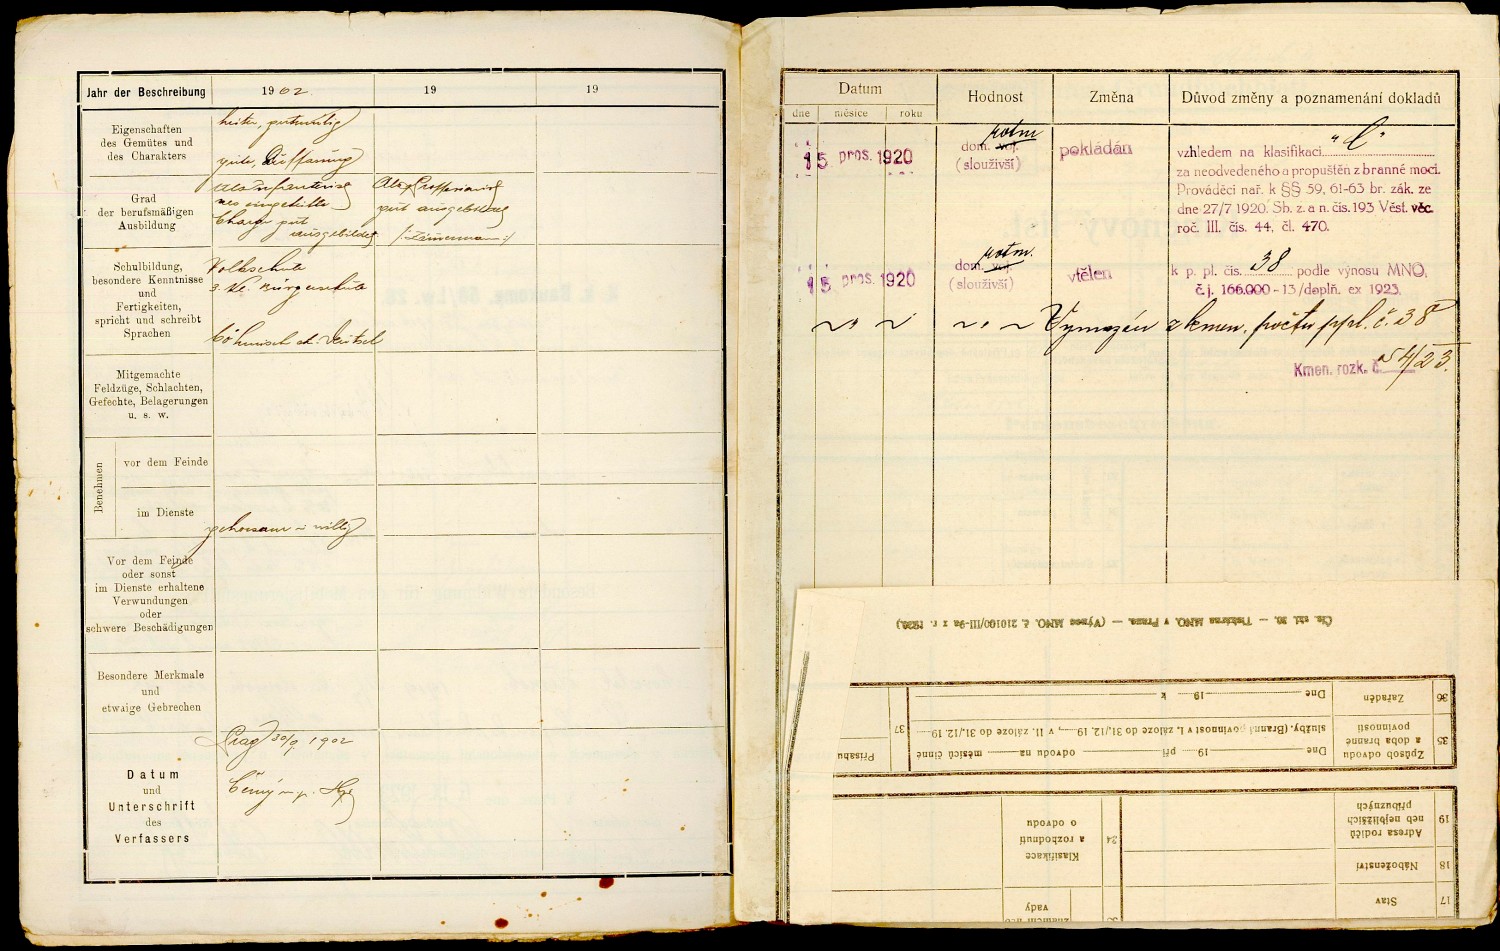 Jahr der Beschreibung
1902.
19
19
Eigenschaften
des Gemütes und
des Charakters
heiter, gutmütig
gute Auffassung
Grad
der berufsmäßigen
Ausbildung
Als Infanterist
Charge gut
ausgebildet
Als Professionist
gut ausgebildet
/:Zimmermann:/
Schulbildung,
besondere Kenntnisse
und
Fertigkeiten,
spricht und schreibt
Sprachen
Volksschule
3. Kl. Bürgerschule
böhmisch u. deutsch
Mitgemachte
Feldzüge, Schlachten,
Gefechte, Belagerungen
u. s. w.
Benehmen
vor dem Feinde
im Dienste
gehorsam u. willig
Vor dem Feinde
oder sonst
im Dienste erhaltene
Verwundungen
oder
schwere Beschädigungen
Besondere Merkmale
und
etwaige Gebrechen
Datum
und
Unterschrift
des
Verfassers
Prag 30/9 1902
Černý m. p.
Datum
dne
měsíce
roku
Hodnost
Změna
Důvod změny a poznamenání dokladů
15 pros. 1920
rotm
dom. voj.
(sloužívší)
pokládán
vzhledem na klasifikaci "C"
za neodvedeného a propuštěn z branné moci.
Prováděcí nař. k §§ 59, 61-63 br. zák. ze
dne 27/7 1920. Sb. z. a n. čís. 193 Věst. věc.
roč. III. čís. 44, čl. 470.
15 pros. 1920
rotm.
dom. voj.
(sloužívší)
vtělen
k p. pl. čís. 38 podle výnosu MNO,
č. j. 166.000-13/doplň. ex 1923.
~ " ~ ~ " ~ Vymazán z kmen. počtu ppl. č. 38
Kmen. rozk. č. 54/23.
Čís. skl. 30. — Tiskárna MNO. v Praze. — (Výnos MNO. č. 210100/III-9a z r. 1923.)
36
Zařaděn
Dne 19 k
35
Způsob odvodu
a doba branné
povinnosti
Dne 19 při odvodu na měsíců činné
služby. (Branná povinnost v I. záloze do 31./12. 19, v II. záloze do 31./12. 19
37
Přísahu
19
Adresa rodičů
neb nejbližších
příbuzných
18
Náboženství
17
Stav
34
Klasifikace
a rozhodnutí
o odvodu
vady